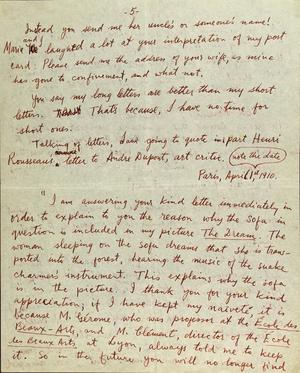 -5-
Instead you send me her uncle's or someone's name!
Marie and I laughed a lot at your interpretation of my post
card. Please send me the address of your wife, as mine
has gone to confinement, and what not.
You say my long letters are better than my short
letters. That's because, I have no time for
short ones.
Talking of letters, I am going to quote in part Henri
Rousseau's letter to Andre Dupont, art critic. (note the date)
Paris, April 1st 1910.
"I am answering your kind letter immediately in
order to explain to you the reason why the Sofa in
question is included in my picture The Dream. The
woman sleeping on the sofa dreams that she is trans-
ported into the forest, hearing the music of the snake
charmer's instrument. This explains why the sofa
is in the picture. I thank you for your kind
appreciation; if I have kept my naivete, it is
because M. Gérome, who was professor at the École des
Beaux-Arts, and M. Clément, director of the École
des Beaux Arts at Lyon, always told me to keep
it. So in the future you will no longer find